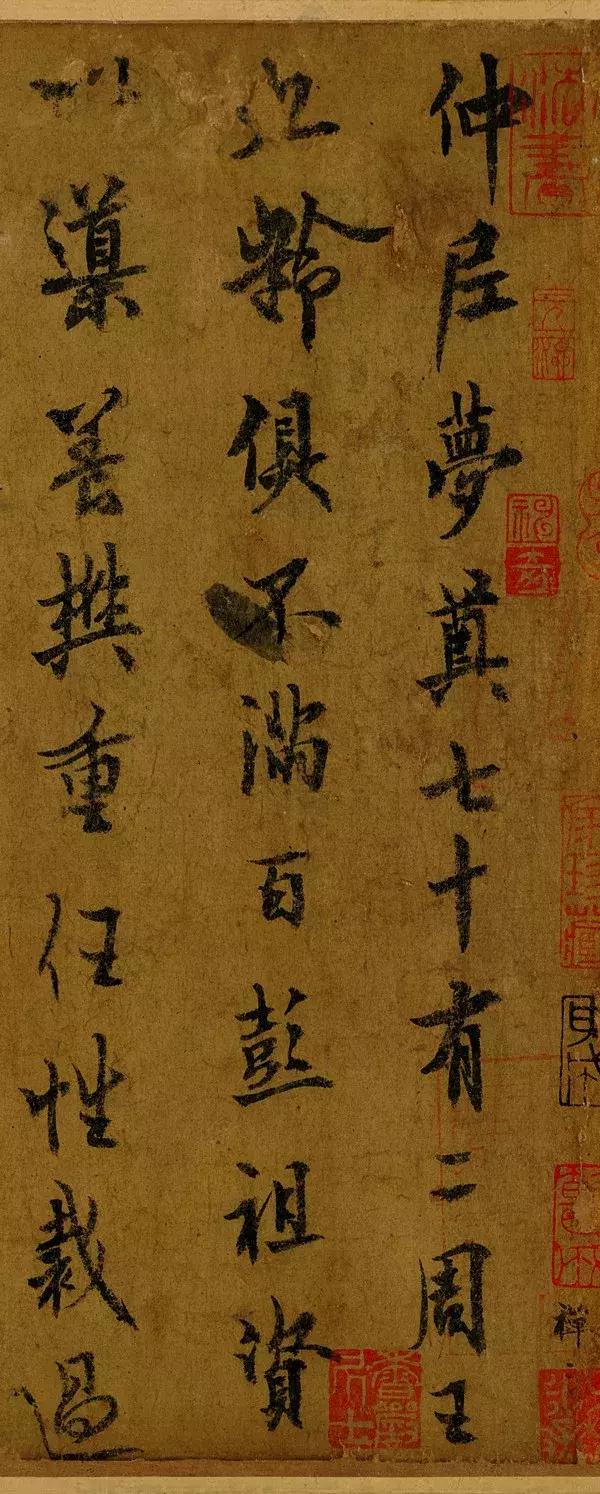 禪
仲尼夢奠七十有二周王
九齡俱不滿百彭祖資
以導養樊重任性裁過